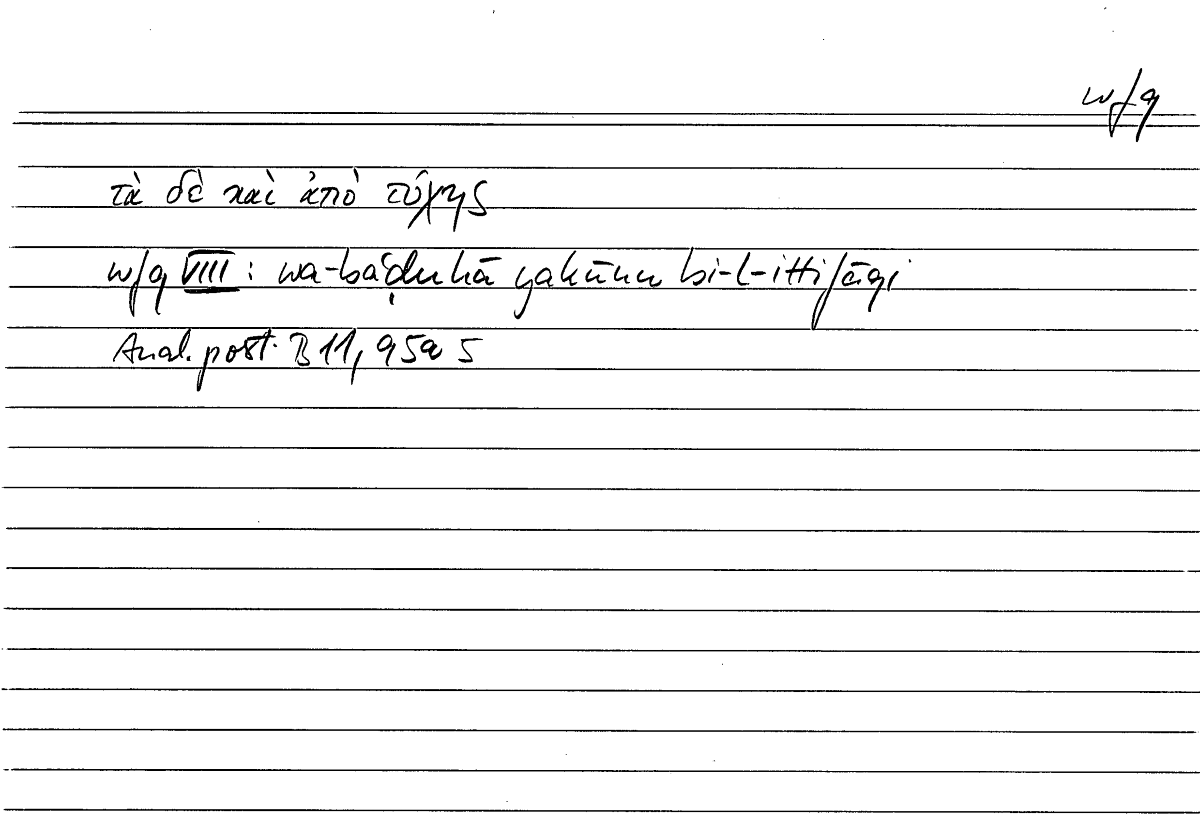 wfq
τὰ δὲ καὶ ἀπὸ τύχης
wfq VIII : wa-baʿḍuhā yakūnu bi-l-ittifāqi
Anal. post. B 11, 95a 5